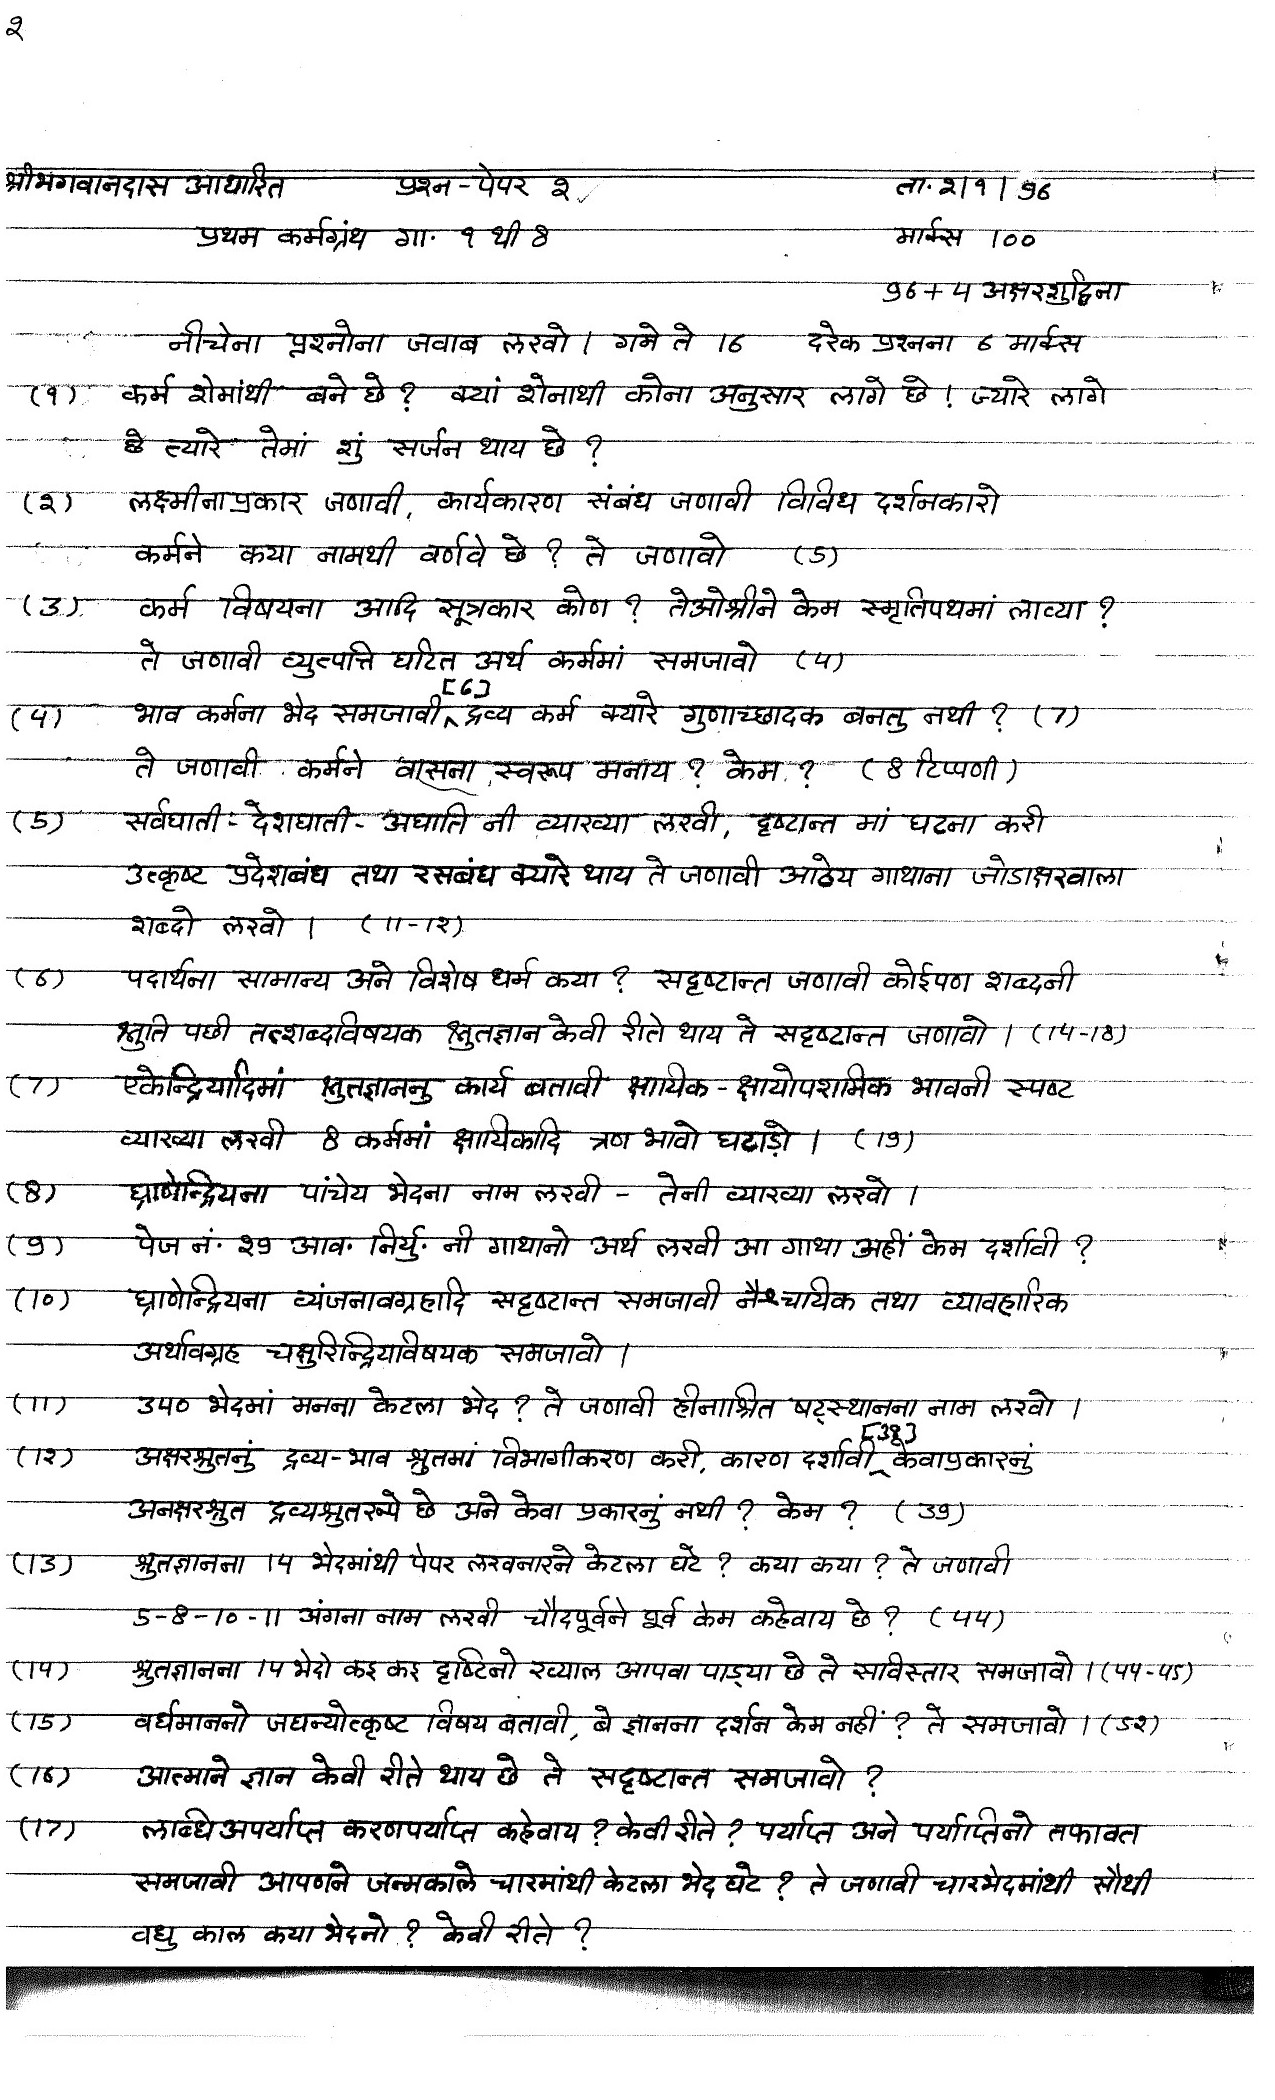 २
श्रीभगवानदास आधारित प्रश्न-पेपर २ ता. २/१/96
प्रथम कर्मग्रंथ गा. १ थी 8 मार्क्स 100
96+4 अक्षरशुद्धिना
नीचेना प्रश्नोना जवाब लखो। गमे ते 16 दरेक प्रश्नना 6 मार्क्स
(१) कर्म शेमांथी बने छे? क्यां शेनाथी कोना अनुसार लागे छे! ज्यारे लागे
छे त्यारे तेमां शुं सर्जन थाय छे?
(२) लक्ष्मीना प्रकार जणावी, कार्यकारण संबंध जणावी विविध दर्शनकारो
कर्मने कया नामथी वर्णवे छे? ते जणावो (5)
(3) कर्म विषयना आदि सूत्रकार कोण? तेओश्रीने केम स्मृतिपथमां लाव्या?
ते जणावी व्युत्पत्ति घटित अर्थ कर्ममां समजावो (4)
[6]
(4) भाव कर्मना भेद समजावी ^ द्रव्य कर्म क्यारे गुणाच्छादक बनतु नथी? (7)
ते जणावी कर्मने वासना स्वरूप मनाय? केम? (8 टिप्पणी)
(5) सर्वघाती-देशघाती-अघाति नी व्याख्या लखी, दृष्टान्त मां घटना करी
उत्कृष्ट प्रदेशबंध तथा रसबंध क्यारे थाय ते जणावी आठेय गाथाना जोडाक्षरवाला
शब्दो लखो। (11-12)
(6) पदार्थना सामान्य अने विशेष धर्म कया? सदृष्टान्त जणावी कोईपण शब्दनी
श्रुति पछी तत्शब्दविषयक श्रुतज्ञान केवी रीते थाय ते सदृष्टान्त जणावो। (14-18)
(7) एकेन्द्रियादिमां श्रुतज्ञाननु कार्य बतावी क्षायिक-क्षायोपशमिक भावनी स्पष्ट
व्याख्या लखी 8 कर्ममां क्षायिकादि त्रण भावो घटाड़ो। (19)
(8) घ्राणेन्द्रियना पांचेय भेदना नाम लखी - तेनी व्याख्या लखो।
(9) पेज नं. २9 आव. निर्यु. नी गाथानो अर्थ लखी आ गाथा अहीं केम दर्शावी?
(10) घ्राणेन्द्रियना व्यंजनावग्रहादि सदृष्टान्त समजावी नैश्चयिक तथा व्यावहारिक
अर्थावग्रह चक्षुरिन्द्रियविषयक समजावो।
(11) 340 भेदमां मनना केटला भेद? ते जणावी हीनाश्रित षट्स्थानना नाम लखो।
[38]
(12) अक्षरश्रुतनुं द्रव्य-भाव श्रुतमां विभागीकरण करी, कारण दर्शावी ^ केवाप्रकारनुं
अनक्षरश्रुत द्रव्यश्रुतरूपे छे अने केवा प्रकारनुं नथी? केम? (39)
(13) श्रुतज्ञानना 14 भेदमांथी पेपर लखनारने केटला घटे? कया कया? ते जणावी
5-8-10-11 अंगना नाम लखी चौदपूर्वने पूर्व केम कहेवाय छे? (44)
(14) श्रुतज्ञानना 14 भेदो कइ कइ दृष्टिनो ख्याल आपवा पाड्या छे ते सविस्तार समजावो। (44-45)
(15) वर्धमाननो जघन्योत्कृष्ट विषय बतावी, बे ज्ञानना दर्शन केम नहीं? ते समजावो। (52)
(16) आत्माने ज्ञान केवी रीते थाय छे ते सदृष्टान्त समजावो?
(17) लब्धि अपर्याप्त करणपर्याप्त कहेवाय? केवी रीते? पर्याप्त अने पर्याप्तिनो तफावत
समजावी आपणने जन्मकाले चारमांथी केटला भेद घटे? ते जणावी चारभेदमांथी सौथी
वधु काल कया भेदनो? केवी रीते?